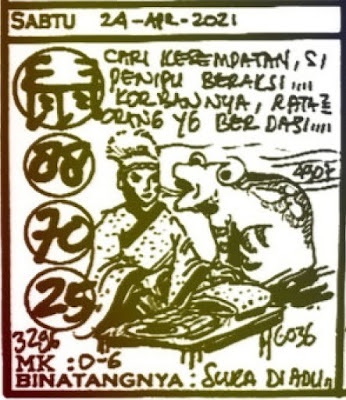 SABTU 24-APR-2021
CARI KESEMPATAN, SI
PENIPU BERAKSI....
KORBANNYA, RATA2
ORANG YG BERDASI....
88
70
25
4807
3286
6036
MK : 0-6
BINATANGNYA : SUKA DI ADU